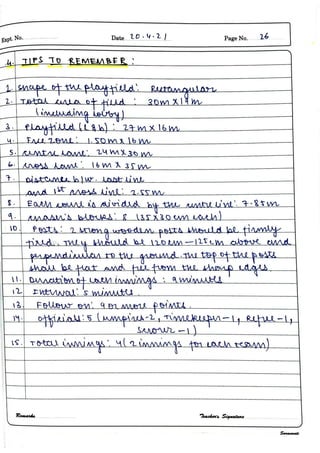 Expt. No.
Date 20.4.21
Page No. 26
4. TIPS TO REMEMBER :
1. shape of the playfield : Rectangular
2. Total area of field : 30m X 19m
(including lobby)
3. Playfield (l & b) : 27m X 16m
4. Free zone : 1.50m X 16m
5. centre Lane : 24m X 30cm
6. cross Lane : 16m X 35cm
7. Distance b/w. last line
and 1st cross line : 2.55m
8. Each court is divided by the centre line : 7.85m
9. chaser's blocks : 8 (35 X 30 cm each)
10. Posts : 2 strong wooden posts should be firmly
fixed. They should be 120cm – 125cm above and
perpendicular to the ground. The top of the posts
shall be flat and free from the sharp edges.
11. Duration of each innings : 9 minutes
12. Interval : 5 minutes
13. Follow on : 9 or more points.
14. officials : 5 (umpires-2, Timekeeper-1, Refree-1,
Scorer-1)
15. Total innings : 4 (2 innings for each team)
Remarks
Teacher's Signature